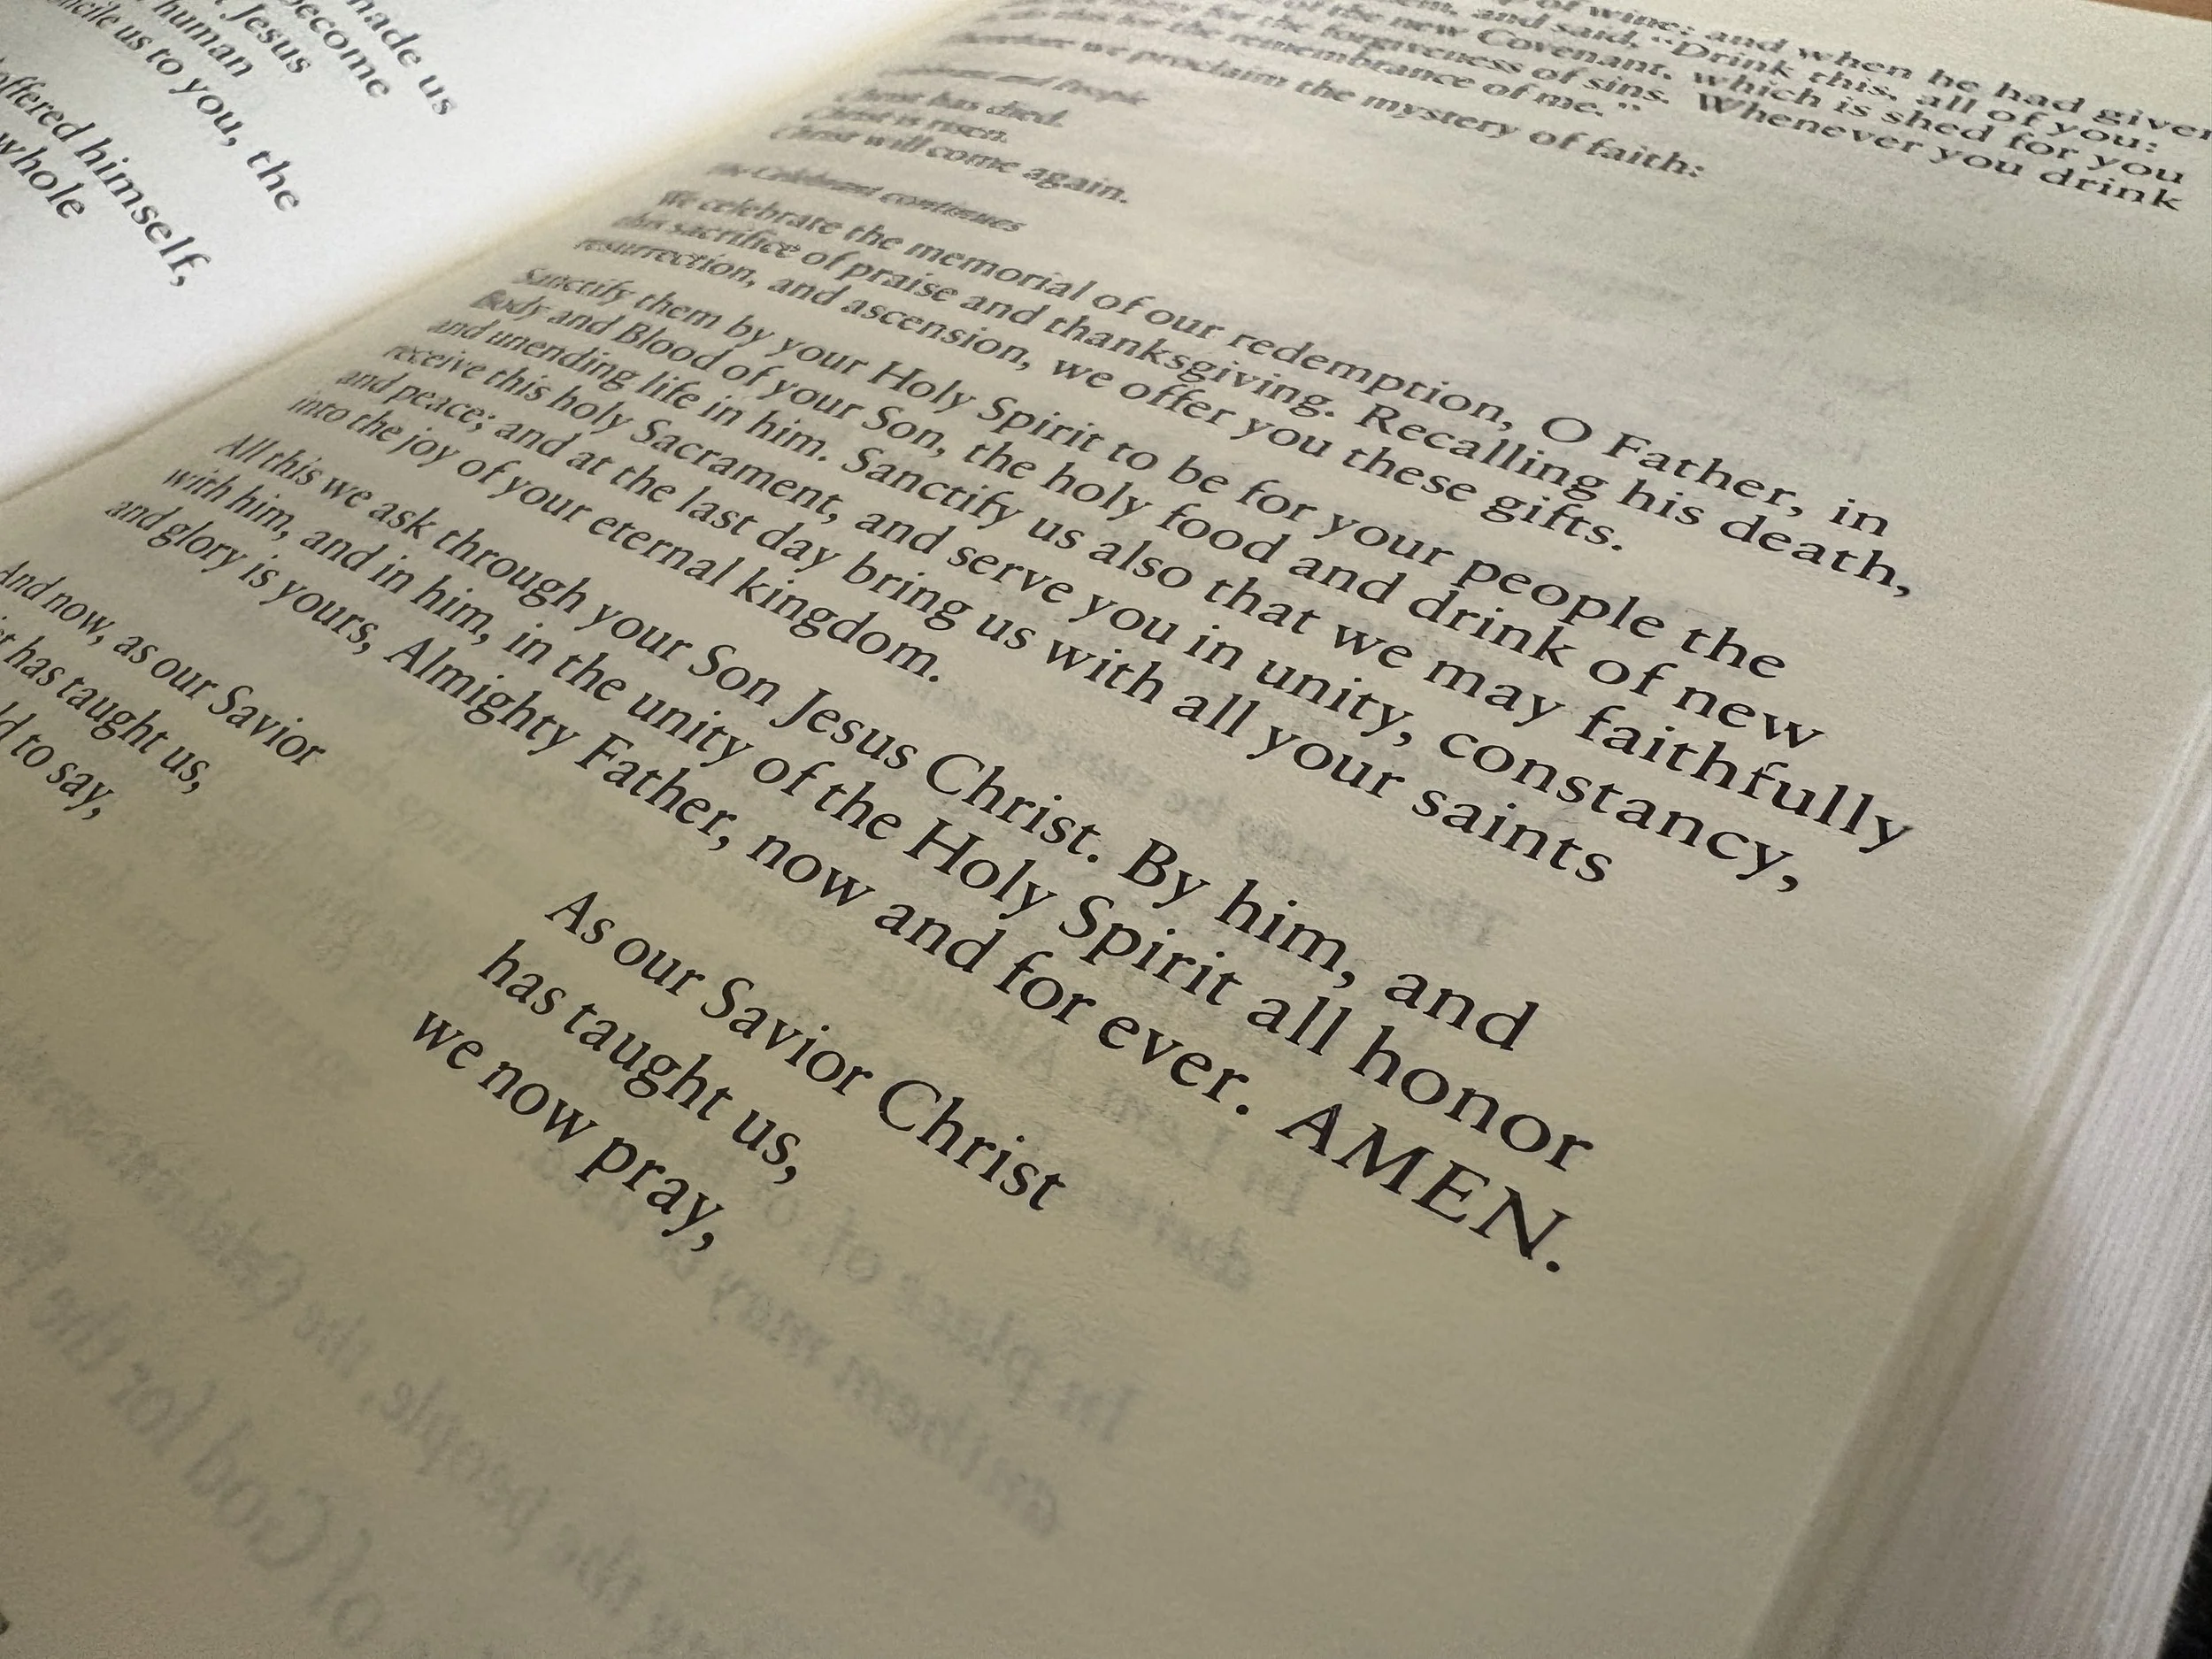 made us
become
Jesus
human
us to you, the
offered himself,
whole
of wine; and when he had given
and said, "Drink this, all of you:
of the new Covenant, which is shed for you
for the forgiveness of sins. Whenever you drink
this for the remembrance of me."
Therefore we proclaim the mystery of faith:
and People
Christ has died.
Christ is risen.
Christ will come again.
The Celebrant continues
We celebrate the memorial of our redemption, O Father, in
this sacrifice of praise and thanksgiving. Recalling his death,
resurrection, and ascension, we offer you these gifts.
Sanctify them by your Holy Spirit to be for your people the
Body and Blood of your Son, the holy food and drink of new
and unending life in him. Sanctify us also that we may faithfully
receive this holy Sacrament, and serve you in unity, constancy,
and peace; and at the last day bring us with all your saints
into the joy of your eternal kingdom.
All this we ask through your Son Jesus Christ. By him, and
with him, and in him, in the unity of the Holy Spirit all honor
and glory is yours, Almighty Father, now and for ever. AMEN.
And now, as our Savior
has taught us,
to say,
As our Savior Christ
has taught us,
we now pray,